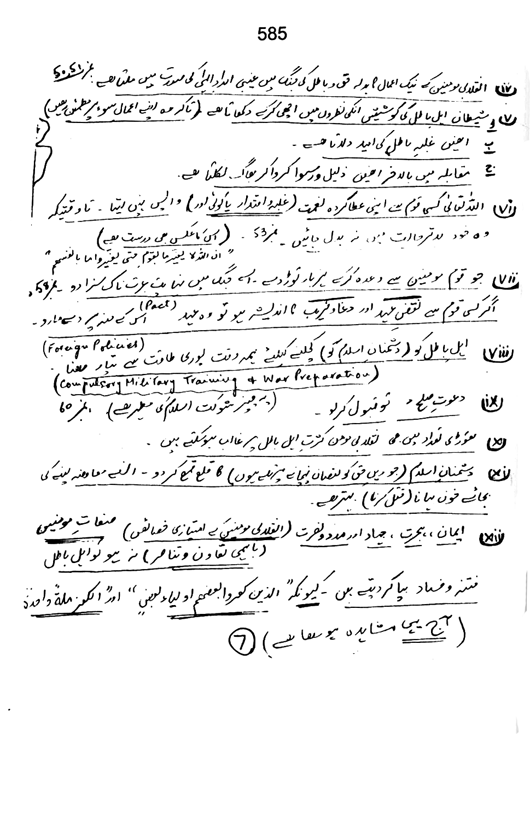 585
(iv) انقلابی مومنین کے نیک اعمال کا بدلہ حق و باطل کی جنگ میں غیبی امداد الٰہی کی صورت میں ملتا ہے۔ نمبر 50،51
(v) و شیطان اہل باطل کی کوششیں انکی نظروں میں اچھی کرکے دکھاتا ہے (تاکہ وہ اپنے اعمال سوء پر مطمئن رہیں)
ب انہیں غلبۂ باطل کی امید دلاتا ہے۔
ج مقابلہ میں بالآخر انہیں ذلیل و رسوا کروا کر بھاگ نکلتا ہے۔
(vi) اللہ تعالیٰ کسی قوم سے اپنی عطا کردہ نعمت (غلبہ اقتدار یا کوئی اور) واپس نہیں لیتا۔ تاوقتیکہ
وہ خود بدتر حالت میں نہ بدل جائیں۔ نمبر 53 (اس کا عکس بھی درست ہے)
"ان اللہ لا یغیر ما بقوم حتی یغیروا ما بانفسهم"
(vii) جو قوم مومنین سے وعدہ کرکے ہر بار توڑ دے۔ اسے جنگ میں نہایت عبرت ناک سزا دو۔ نمبر 58،
اگر کسی قوم سے نقض عہد اور دغا و فریب کا اندیشہ ہو تو وہ عہد (Pact) اس کے منہ پر دے مارو۔
(Foreign Policies)
(viii) اہل باطل کو (دشمنان اسلام کو) کچلنے کیلئے ہمہ وقت پوری طاقت سے تیار رہنا۔
(Compulsory Military Training & War Preparation)
(ix) دعوتِ صلح ہو تو قبول کرلو۔ (یہ چیز شوکت اسلام کی مظہر ہے) نمبر 60
(x) تھوڑی تعداد میں بھی انقلابی مومن کثرت اہل باطل پر غالب ہوسکتے ہیں۔
(xi) دشمنان اسلام (جو دین حق کو نقصان پہنچانے پر تلے ہوں) کا قلع قمع کردو۔ ان سے معاوضہ لینے کی
بجائے خون بہانا (قتل کرنا) بہتر ہے۔
(xii) ایمان، ہجرت، جہاد اور مدد و نصرت (انقلابی مومنین کے امتیازی خصائص) صفات مومنین
(باہمی تعاون و تناصر) نہ ہو تو اہل باطل
فتنہ و فساد بپا کردیتے ہیں۔ کیونکہ "الذین کفروا بعضهم اولیاء بعض" اور "الکفر ملة واحدة"
(آج یہی مشاہدہ ہو رہا ہے) 7